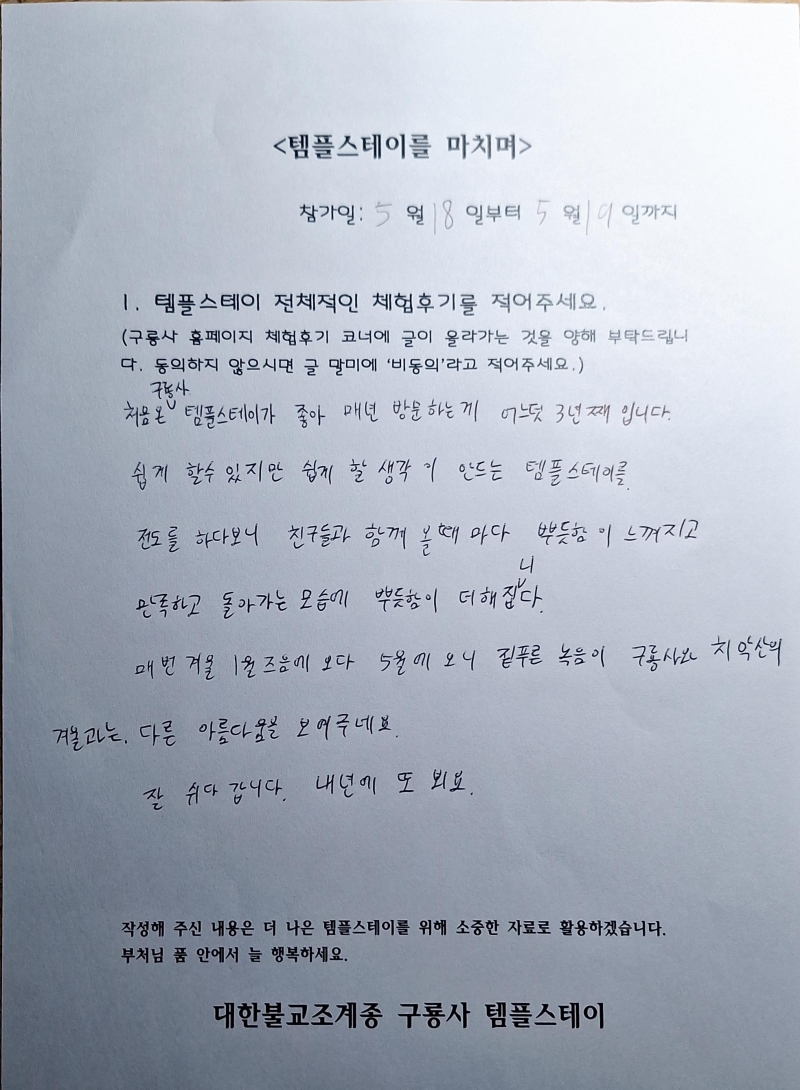 <템플스테이를 마치며>
참가일: 5 월 18 일부터 5 월 19 일까지
1. 템플스테이 전체적인 체험후기를 적어주세요.
(구룡사 홈페이지 체험후기 코너에 글이 올라가는 것을 양해 부탁드립니
다. 동의하지 않으시면 글 말미에 '비동의'라고 적어주세요.)
처음온 구룡사 템플스테이가 좋아 매년 방문하는게 어느덧 3년째 입니다.
쉽게 할수 있지만 쉽게 할 생각이 안드는 템플스테이를
전도를 하다보니 친구들과 함께 올때 마다 뿌듯함이 느껴지고
만족하고 돌아가는 모습에 뿌듯함이 더해집니다.
매번 겨울 1월 즈음에 오다 5월에 오니 짙푸른 녹음이 구룡사와 치악산의
겨울과는, 다른 아름다움을 보여주네요.
잘 쉬다 갑니다. 내년에 또 뵈요.
작성해 주신 내용은 더 나은 템플스테이를 위해 소중한 자료로 활용하겠습니다.
부처님 품 안에서 늘 행복하세요.
대한불교조계종 구룡사 템플스테이